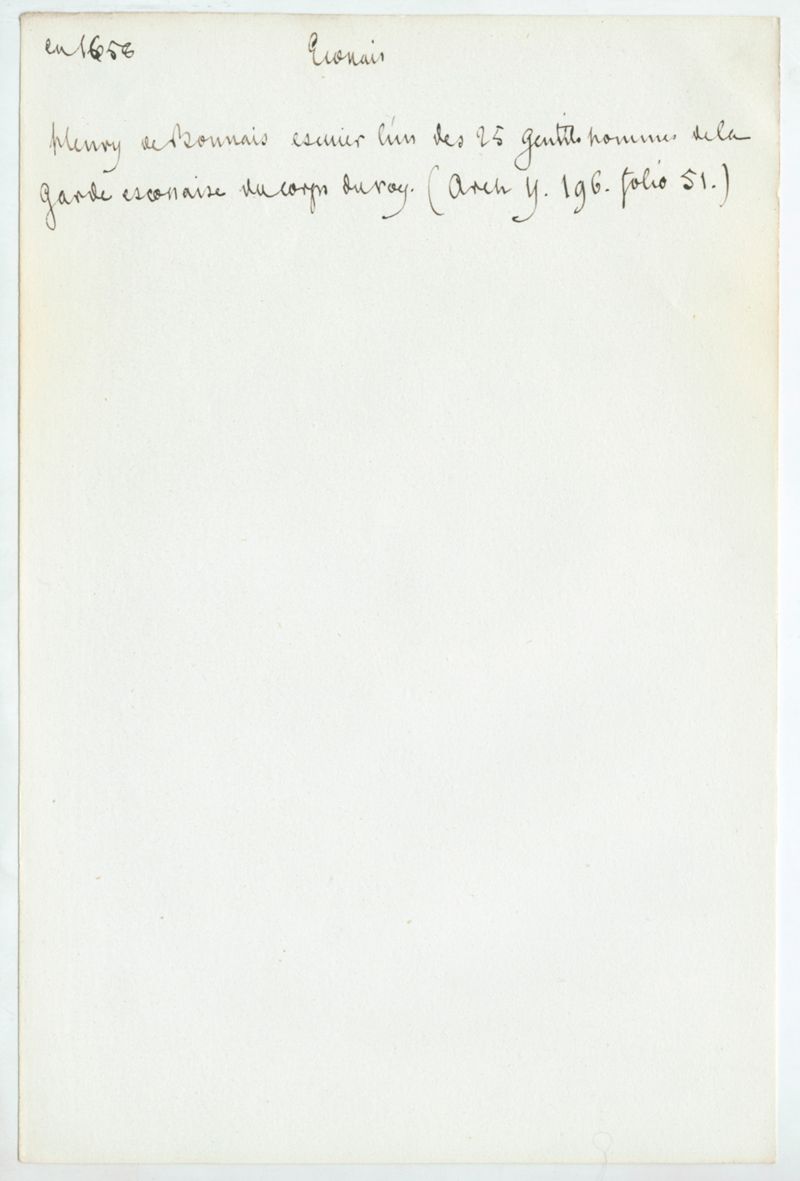 en 1658 Econais
Henry de Bonnais escuier l'un des 25 gentilshommes de la
Garde esconaise du corps du roy. (Arch Y. 196. folio 51.)